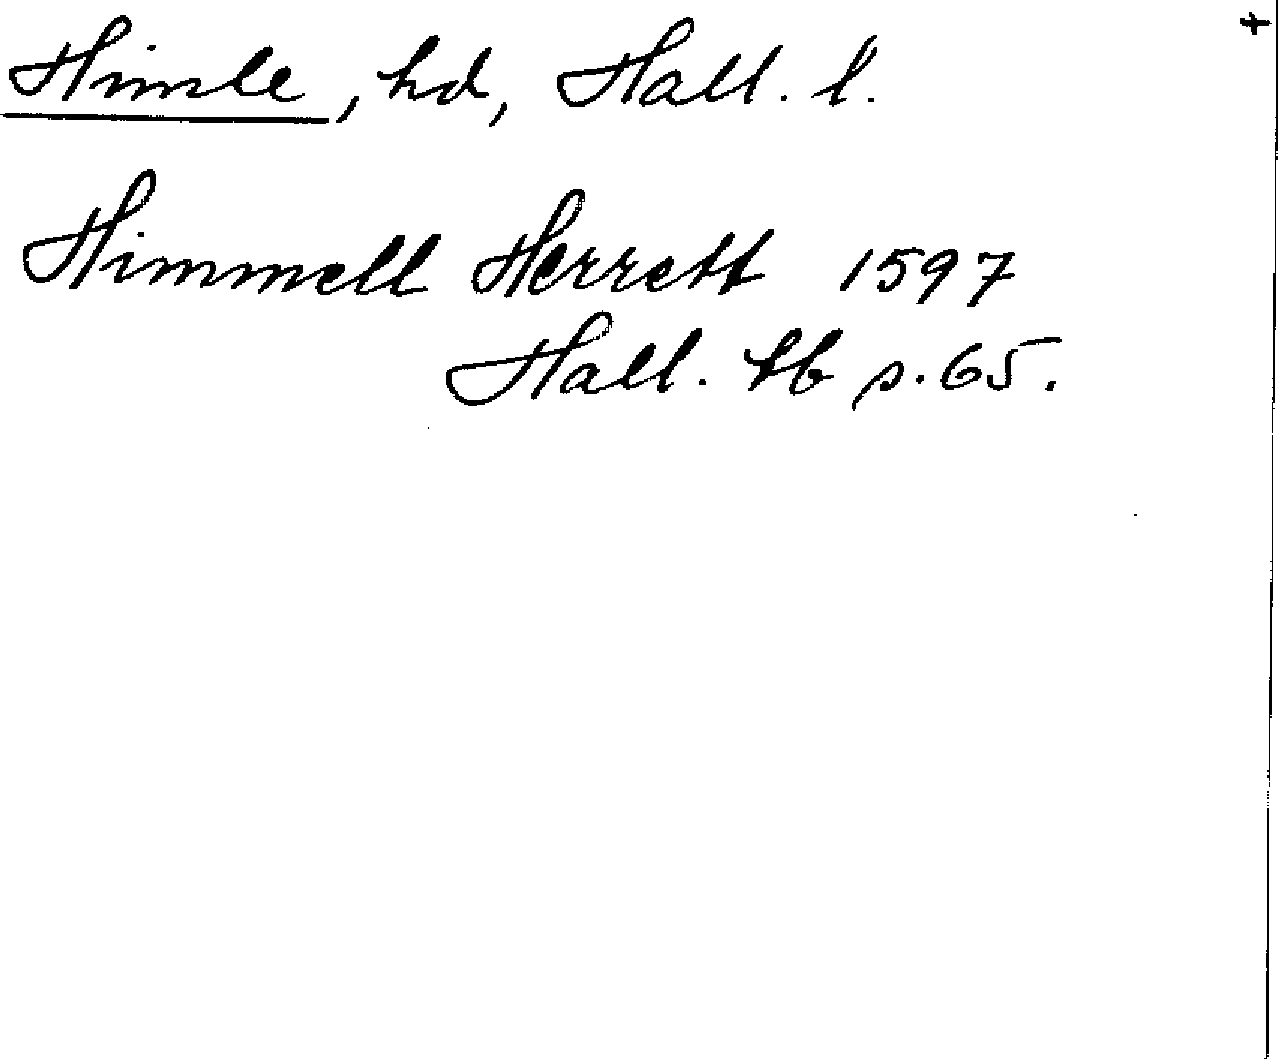 Himle, hd, Hall. l.
Himmell Herrett 1597
Hall. tb s. 65.